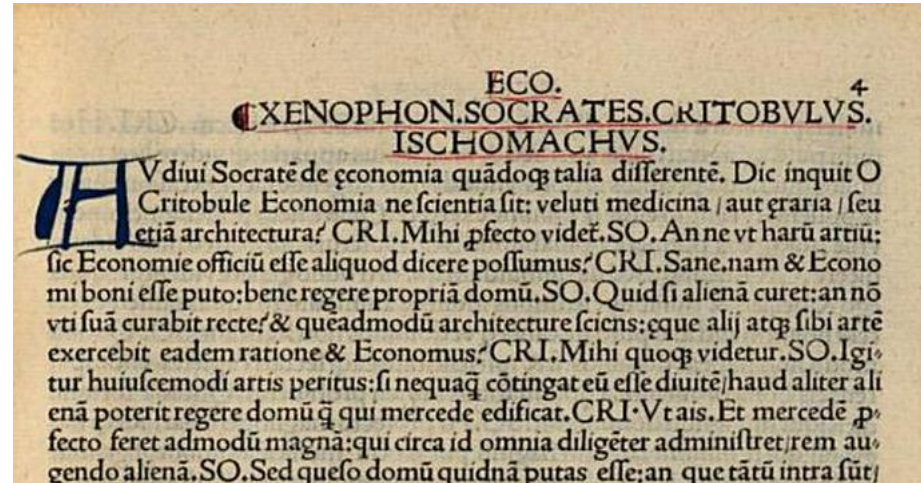 ECO. 4
⸿XENOPHON.SOCRATES.CRITOBVLVS.
ISCHOMACHVS.
AVdiui Socratē de ęconomia quādoqꝫ talia diſſerentē. Dic inquit O
Critobule Economia ne ſcientia ſit: veluti medicina / aut ęraria / ſeu
etiā architectura? CRI.Mihi ꝓfecto videt̃. SO. An ne vt harū artiū:
ſic Economie officiū eſſe aliquod dicere poſſumus? CRI.Sane.nam & Econo
mi boni eſſe puto: bene regere propriā domū.SO.Quid ſi alienā curet: an nō
vti ſuā curabit recte? & quēadmodū architecture ſciens: ęque alij atqꝫ ſibi artē
exercebit eadem ratione & Economus? CRI.Mihi quoqꝫ videtur.SO.Igi-
tur huiuſcemodi artis peritus: ſi nequaq̄ cōtingat eū eſſe diuitē/haud aliter ali
enā poterit regere domū q̄ qui mercede edificat.CRI.Vt ais.Et mercedē ꝓ-
fecto feret admodū magnā: qui circa id omnia diligēter adminiſtret/rem au-
gendo alienā.SO.Sed queſo domū quidnā putas eſſe: an que tātū intra ſūt/